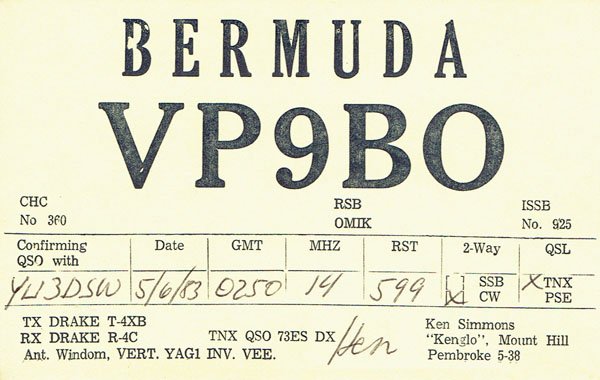 BERMUDA
VP9BO
CHC RSB ISSB
No 360 OMIK No. 925
Confirming QSO with Date GMT MHZ RST 2-Way QSL
YU3DSW 5/6/83 0250 14 599 [ ] SSB X TNX
X CW PSE
TX DRAKE T-4XB
RX DRAKE R-4C TNX QSO 73ES DX Ken
Ant. Windom, VERT. YAG1 INV. VEE.
Ken Simmons
"Kenglo", Mount Hill
Pembroke 5-38